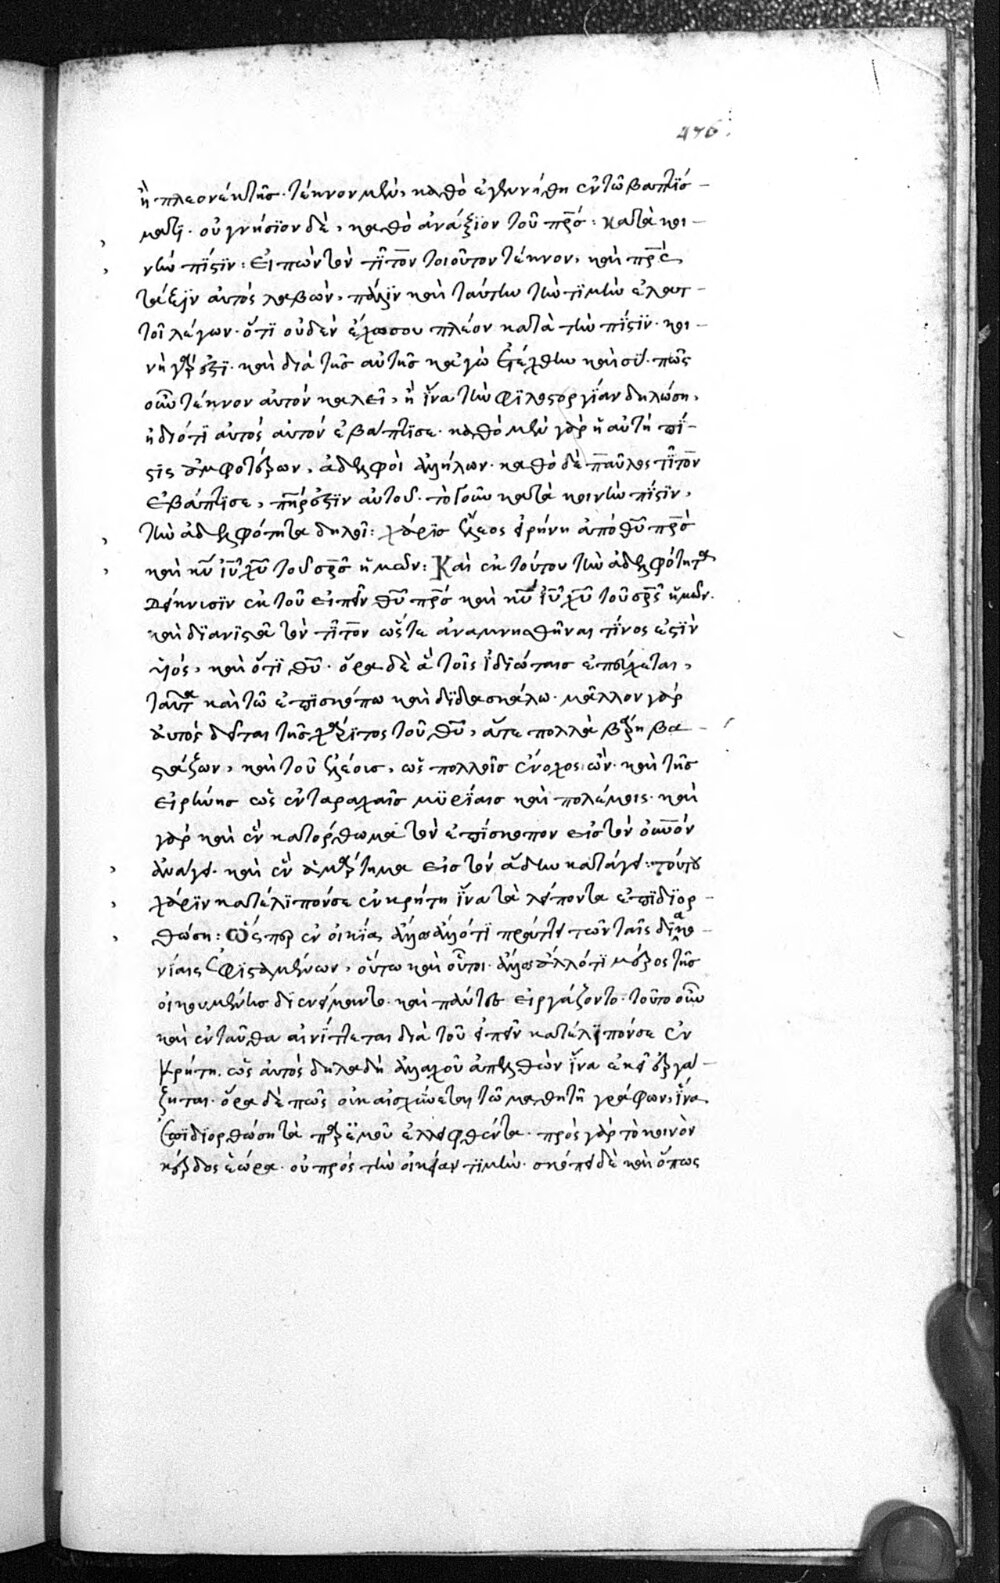 476
ἢ πλεονέκτης. τέκνον μὲν, καθὸ ἐγεννήθη ἐν τῶ βαπτίσ-
ματι. οὐ γνήσϊον δὲ, καθὸ ἀνάξϊον τοῦ πρσ: Κατὰ κοι-
νὴν πίστϊν: Εἰπὼν τὸν τίτον τοιοῦτον τέκνον, καὶ πρς
τάξϊν αὐτὸς λαβὼν, πάλϊν καὶ ταύτην τὴν τϊμὴν ἐλαττ-
τοῖ λέγων. ὅτϊ οὐδὲν ἔχω σου πλέον κατὰ τὴν πίστϊν. κοι-
νὴ γάρ ἐστϊ. καὶ διὰ τῆς αὐτῆς κἀγὼ ἐτέχθην καὶ σύ. πῶς
οὖν τέκνον αὐτὸν καλεῖ, ἢ ἵνα τὴν φϊλοστοργίαν δηλώση,
ἢ διότϊ αὐτὸς αὐτὸν ἐβάπτϊσε. καθὸ μὲν γὰρ ἡ αὐτὴ πί-
στις ἀμφοτέρων, ἀδελφοὶ ἀλλήλων. καθὸ δὲ παῦλος τίτον
ἐβάπτϊσε, πηρ ἐστϊν αὐτοῦ. τὸ οὖν κατὰ κοινὴν πίστϊν,
τὴν ἀδελφότητα δηλοῖ: χάρϊς ἔλεος εἰρήνη ἀπὸ θυ πρσ
καὶ κυ ιυ χυ τοῦ σρσ ἡμῶν: Καὶ ἐκ τούτου τὴν ἀδελφότητα
δείκνυσϊν ἐκ τοῦ εἰπεῖν θυ πρσ καὶ κυ ιυ χυ τοῦ σρσ ἡμῶν.
καὶ δϊανιστᾶ τὸν τίτον ὥστε ἀναμνησθῆναι τίνος ἐστὶν
υἱὸς, καὶ ὅτϊ θυ. ὅρα δὲ ἃ τοῖς ἰδϊώταις ἐπεύχεται,
ταῦτα καὶ τῶ ἐπϊσκόπω καὶ δϊδασκάλω. μᾶλλον γὰρ
αὐτὸς δεῖται τῆς χάρϊτος τοῦ θυ, ἅτε πολλὰ βάρη βα-
στάζων, καὶ τοῦ ἐλέους, ὡς πολλοῖς ἔνοχος ὢν. καὶ τῆς
εἰρήνης ὡς ἐν ταραχαῖς μϋρίαις καὶ πολέμοις. καὶ
γὰρ καὶ ἓν κατόρθωμα τὸν ἐπίσκοπον εἰς τὸν οὐνὸν
ἀνάγει. καὶ ἓν ἁμάρτημα εἰς τὸν ἅδην κατάγει: τούτου
χάρϊν κατέλϊπόν σε ἐν κρήτη ἵνα τὰ λείποντα ἐπϊδϊορ-
θώση: Ὥσπερ ἐν οἰκία ἄλλω ἄλλό τϊ πράττει τῶν ταῖς δϊακο-
νίαις ἐφϊσταμένων, οὕτω καὶ οὗτοι. ἄλλω ἄλλό τϊ μέρος τῆς
οἰκουμένης δϊενείμαντο. καὶ πάντες εἰργάζοντο. τοῦτο οὖν
καὶ ἐνταῦθα αἰνίττεται διὰ τοῦ εἰπεῖν κατέλϊπόν σε ἐν
Κρήτη. ὡς αὐτὸς δηλαδὴ ἀλλαχοῦ ἀπελθὼν ἵνα ἐκεῖ ἐργά-
ζηται. ὅρα δὲ πῶς οὐκ αἰσχύνεται τῶ μαθητῆ γράφων, ἵνα
ἐπϊδϊορθώση τὰ παρ' ἐμοῦ ἐλλειφθέντα. πρὸς γὰρ τὸ κοινὸν
κέρδος ἑώρα. οὐ πρὸς τὴν οἰκείαν τϊμὴν. σκόπει δὲ καὶ ὅπως